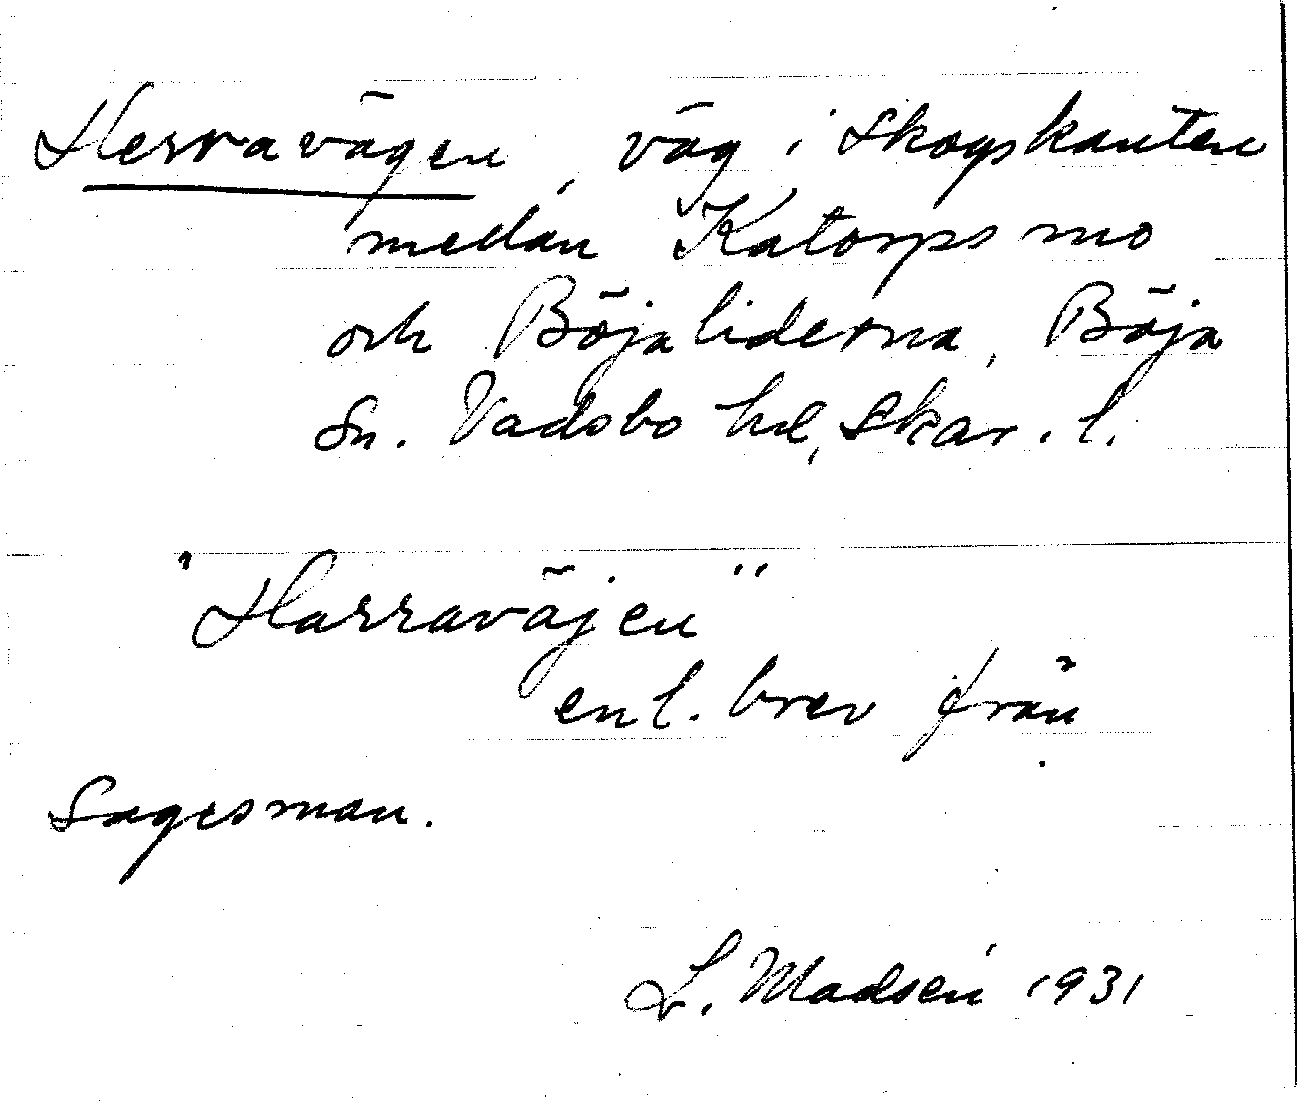 Herravägen, väg i skogskanten
medan Katorps mo
och Böjaliderna, Böja
Sn. Vadsbo hd, Skar. l.
"Harraväjen"
enl. brev från
Sagesman.
L. Madsén 1931